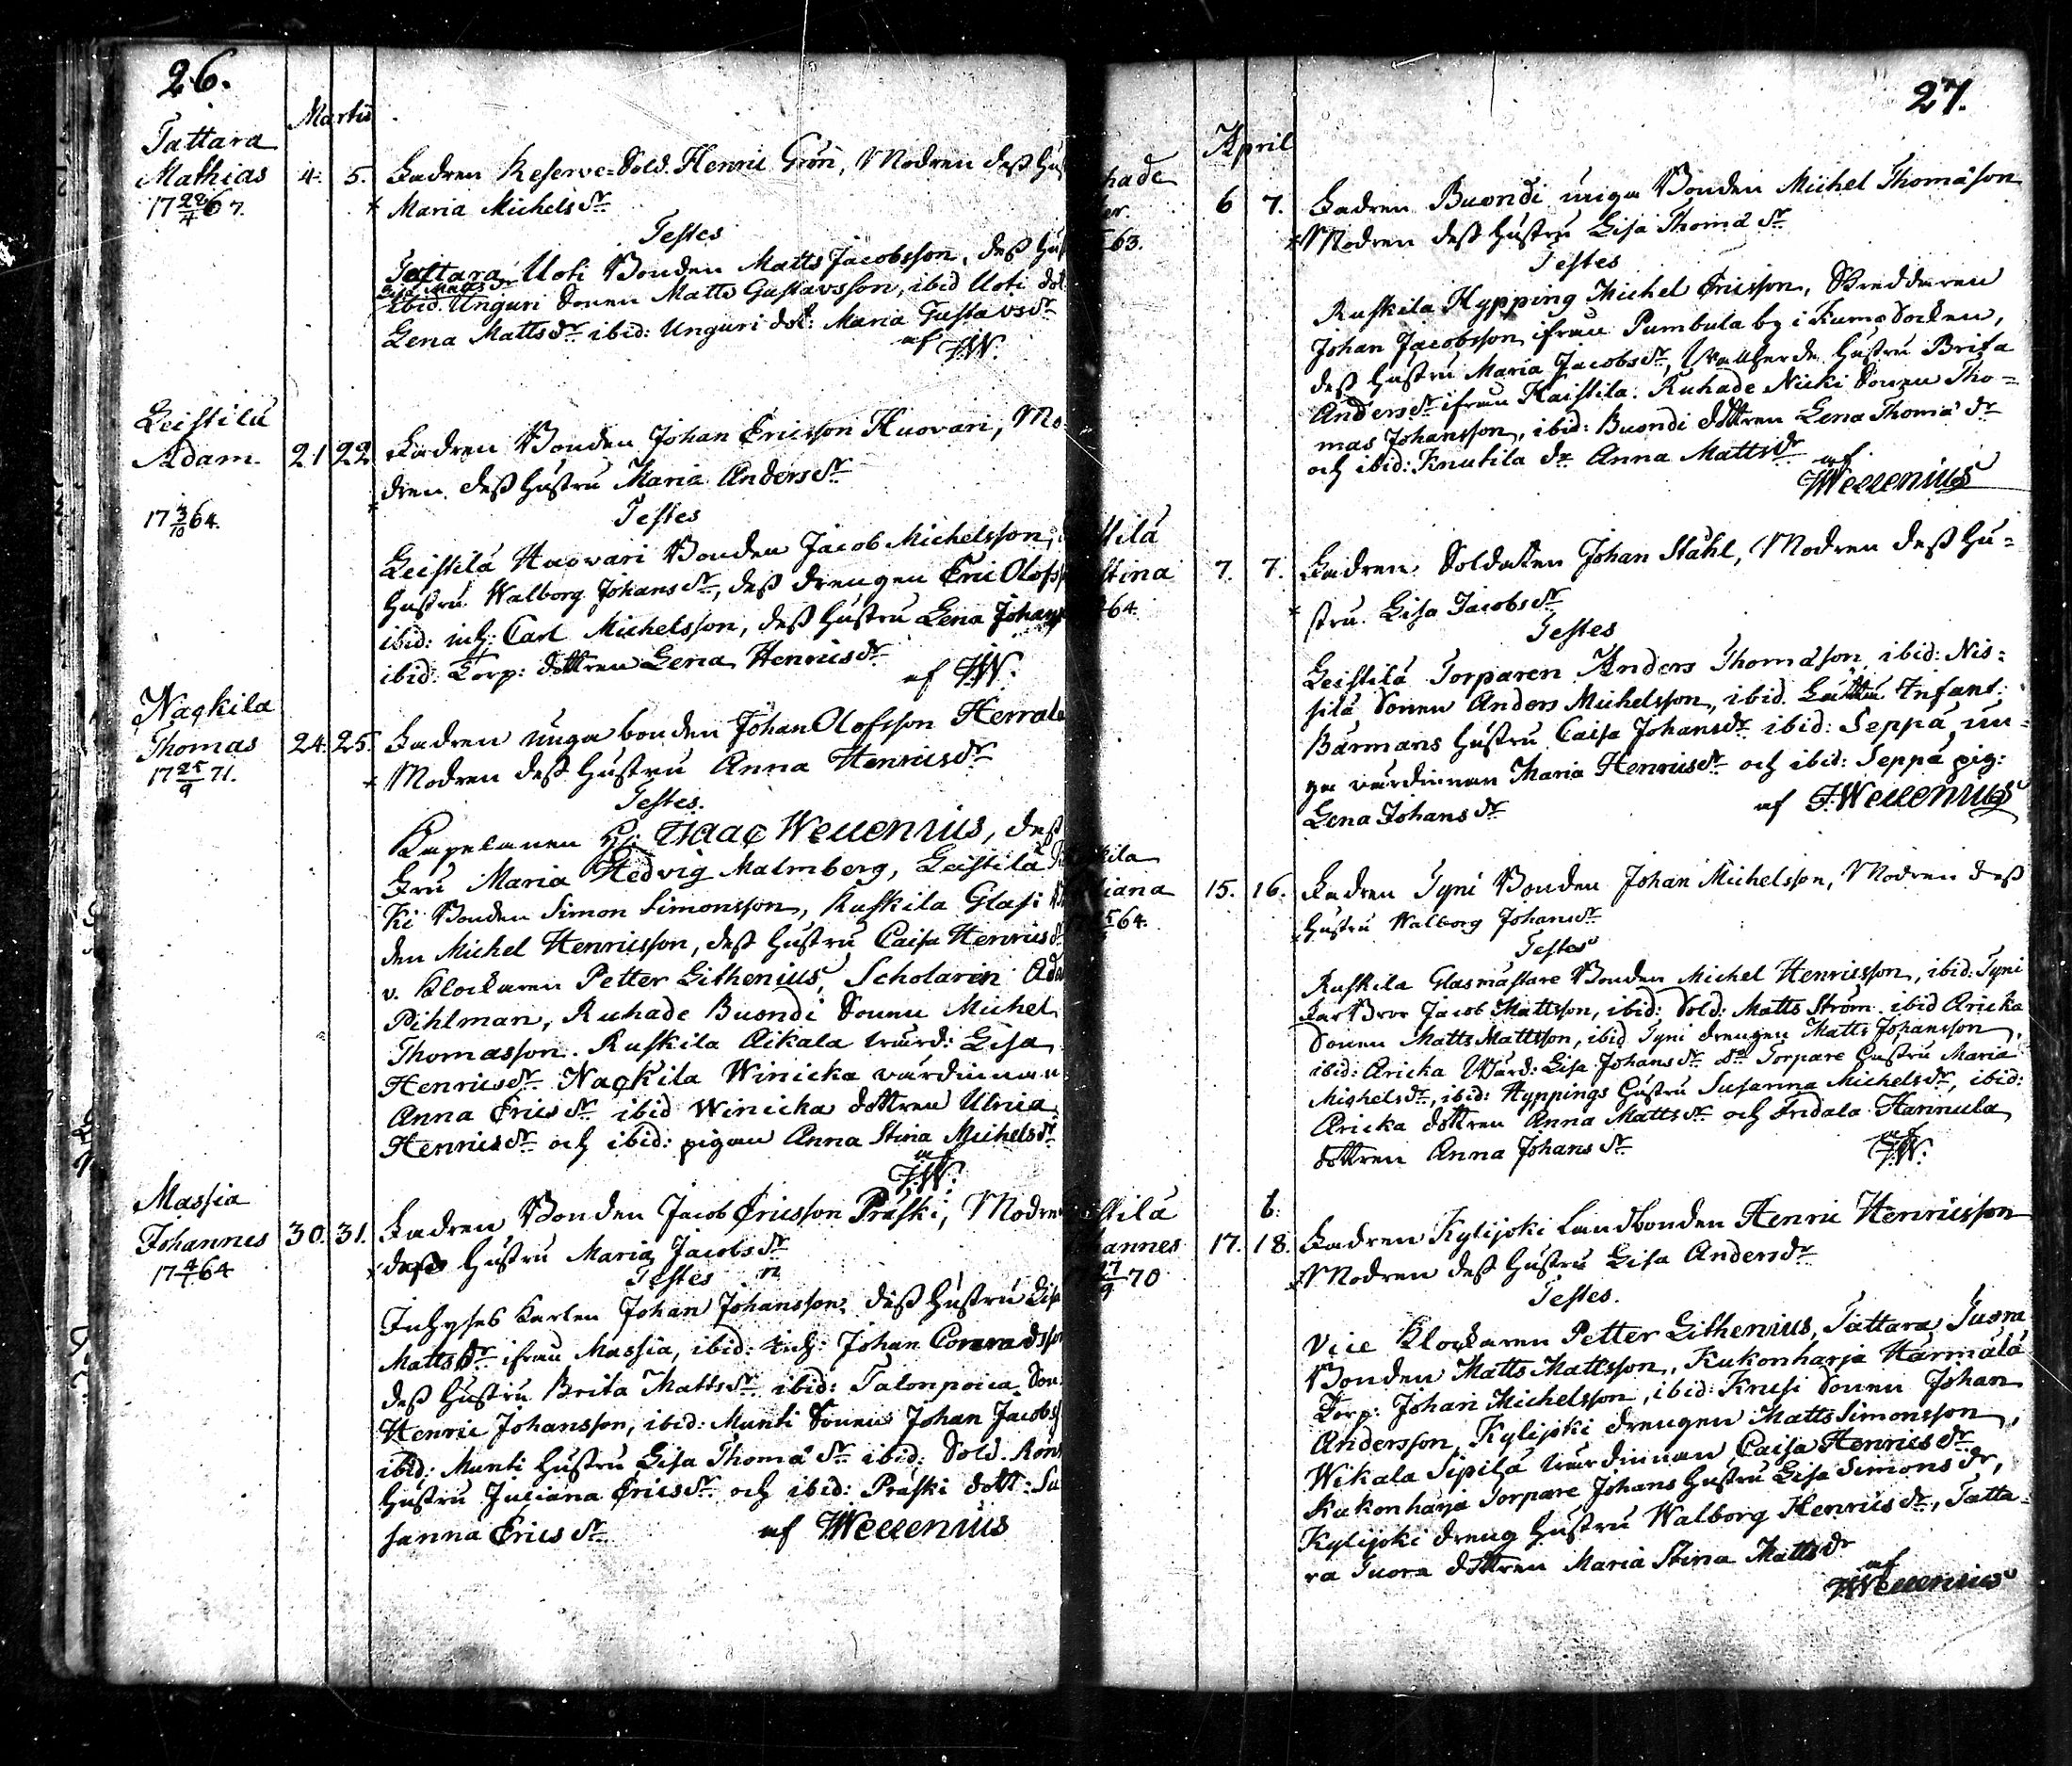 26.
Martii
Tattara
Mathias 4. 5. Fadren Reserve=Sold. Henric Grön, Modren dess Hus
17 22/4 67.
Maria Michels dr
Testes
Tattara Uoti Bonden Matts Jacobsson, dess Hus
ibid. Unguri Sonen Matts Gustavsson, ibid Uoti dot
Lena Matts dr ibid: Unguri dot: Maria Gustavs dr
af I.W.
Leistilä
Adam. 21 22 Fadren Bonden Johan Ericsson Huovari, Mo-
dren dess Hustru Maria Anders dr
17 3/10 64.
Testes
Leistilä Huovari Bonden Jacob Michelsson,
Hustru Walborg Johans dr, dess drengen Eric Olofss
ibid: inh: Carl Michelsson, dess Hustru Lena Johans
ibid: Torp: dottren Lena Henrics dr
af I.W.
Nackila
Thomas 24. 25. Fadren unga bonden Johan Olofsson Herrala
17 25/9 71.
Modren dess Hustru Anna Henrics dr
Testes.
Kapelanen H: Isaac Wellenius, dess
Fru Maria Hedvig Malmberg, Leistilä
ki Bonden Simon Simonsson, Ruskila Glasi
den Michel Henricsson, dess Hustru Caisa Henrics d
v. Klockaren Petter Lithenius, Scholaren Ada
Pihlman, Ruhade Buondi Sonen Michel
Thomasson. Ruskila Aikala wärd: Lisa
Henrics dr Nackila Winicka värdinnan
Anna Erics dr ibid Winicka dottren Ulrica
Henrics dr och ibid: pigan Anna Stina Michels dr
af
I.W.
Massia
Johannes 30. 31. Fadren Bonden Jacob Ericsson Präski, Modre
17 4/1 64
dess Hustru Maria Jacobs dr
Testes
Inhyses Karlen Johan Johansson, dess Hustru Lisa
Matts dr ifrån Massia, ibid: inh: Johan Conradsson
dess Hustru Brita Matts dr ibid: Talonpoica Son
Henric Johansson, ibid: Munti Sonen Johan Jacobs
ibid: Munti Hustru Lisa Thomä dr ibid: Sold. Rön
Hustru Juliana Erics dr och ibid: Präski dott: Su
sanna Erics dr
af I Wellenius
27.
April
hade
6 7. Fadren Buondi unga Bonden Michel Thomäson
63.
Modren dess Hustru Lisa Thomä dr
Testes
Ruskila Hypping Michel Ericsson, Skreddaren
Johan Jacobsson ifrån Pumbula by i Kumo Socken,
dess Hustru Maria Jacobs dr, Hustru Brita
Anders dr ifrån Kaistila. Ruhade Nicki Sonen Tho=
mas Johansson, ibid: Buondi dottren Lena Thomä dr
och ibid: Knutila dr Anna Matts dr
af
I Wellenius
stilä
stina 7. 7. Fadren Soldaten Johan Stahl, Modren dess Hu=
64.
stru. Lisa Jacobs dr
Testes
Leistilä Torparen Anders Thomäson, ibid: Nis=
silä Sonen Anders Michelsson, ibid. Infant.
Bärmans Hustru Caisa Johans dr ibid: Seppä un-
ga värdinnan Maria Henrics dr och ibid: Seppä pig:
Lena Johans dr
af I. Wellenius
kila
liana 15. 16. Fadren Tyni Bonden Johan Michelsson, Modren dess
64.
Hustru Walborg Johans dr
Testes
Ruskila Glasmästare Bonden Michel Henricsson, ibid: Tyni
Farbror Jacob Mattsson, ibid: Sold: Matts Ström. ibid Aricka
Sonen Matts Mattsson, ibid Tyni drengen Matts Johansson,
ibid: Aricka Wärd: Lisa Johans dr do Torpare Hustru Maria
Michels dr, ibid: Hyppings Hustru Susanna Michels dr, ibid:
Aricka dottren Anna Matts dr och Fridala Hannula
dottren Anna Johans dr
af
I.W.
stilä
annes 17. 18. Fadren Kylijoki Landbonden Henric Henricsson
27/9 70
Modren dess Hustru Lisa Anders dr
Testes.
Vice Klockaren Petter Lithenius, Tattara Tuora
Bonden Matts Mattsson, Kukonharja Härmälä
Torp: Johan Michelsson, ibid: Krusi Sonen Johan
Andersson, Kylijoki drengen Matts Simonsson,
Wikala Sipilä wärdinnan Caisa Henrics dr
Kukonharja Torpare Johans Hustru Lisa Simons dr,
Kylijoki dreng Hustru Walborg Henrics dr, Tatta-
ra Tuora dottren Maria Stina Matts dr
af
I Wellenius